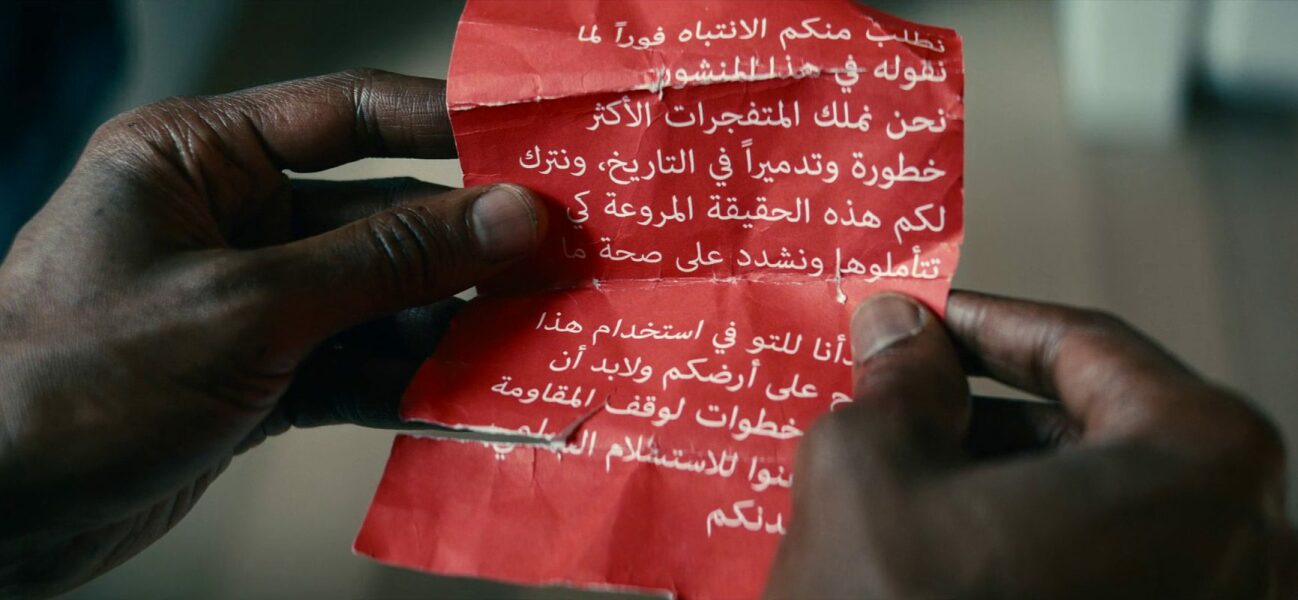 نطلب منكم الانتباه فوراً لما
نقوله في هذا المنشور
نحن نملك المتفجرات الأكثر
خطورة وتدميراً في التاريخ، ونترك
لكم هذه الحقيقة المروعة كي
تتأملوها ونشدد على صحة ما
للتو في استخدام هذا
على أرضكم ولابد أن
خطوات لوقف المقاومة
للاستسلام